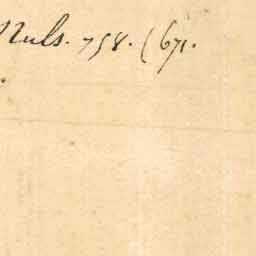 Nuls. 758. (671.